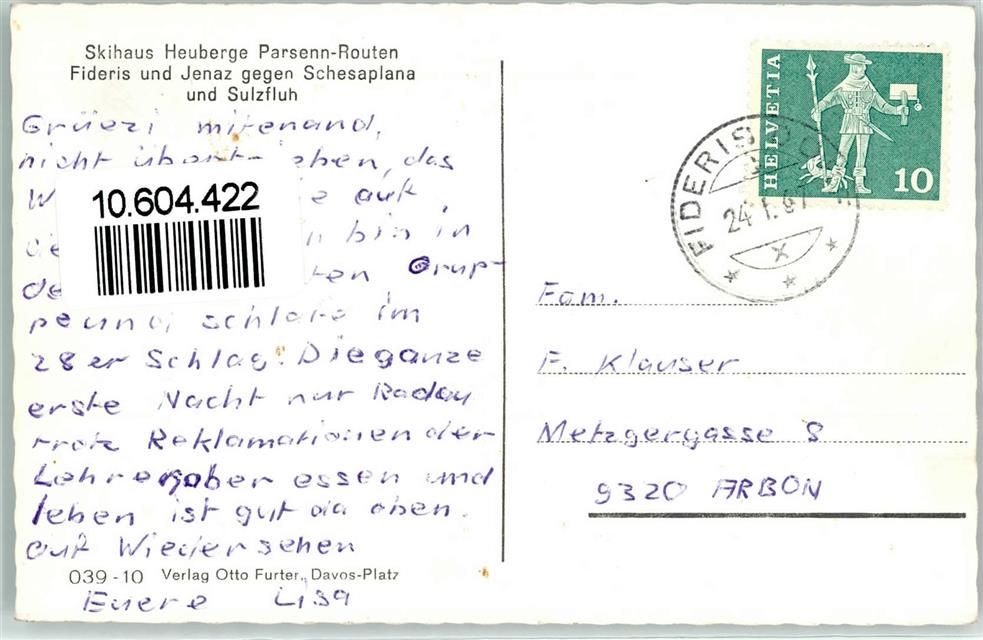 Skihaus Heuberge Parsenn-Routen
Fideris und Jenaz gegen Schesaplana
und Sulzfluh
Grüezi mitenand,
nicht das
W auf
bin in
Grup-
pe und schlafe im
28er Schlag. Die ganze
erste Nacht nur Radau
trotz Reklamationen der
Lehrer, aber essen und
leben ist gut da oben.
auf Wiedersehen
Euere Lisa
039-10 Verlag Otto Furter, Davos-Platz
10.604.422
HELVETIA
10
FIDERIS
24.1.67
X
Fam.
F. Klauser
Metzgergasse 8
9320 ARBON